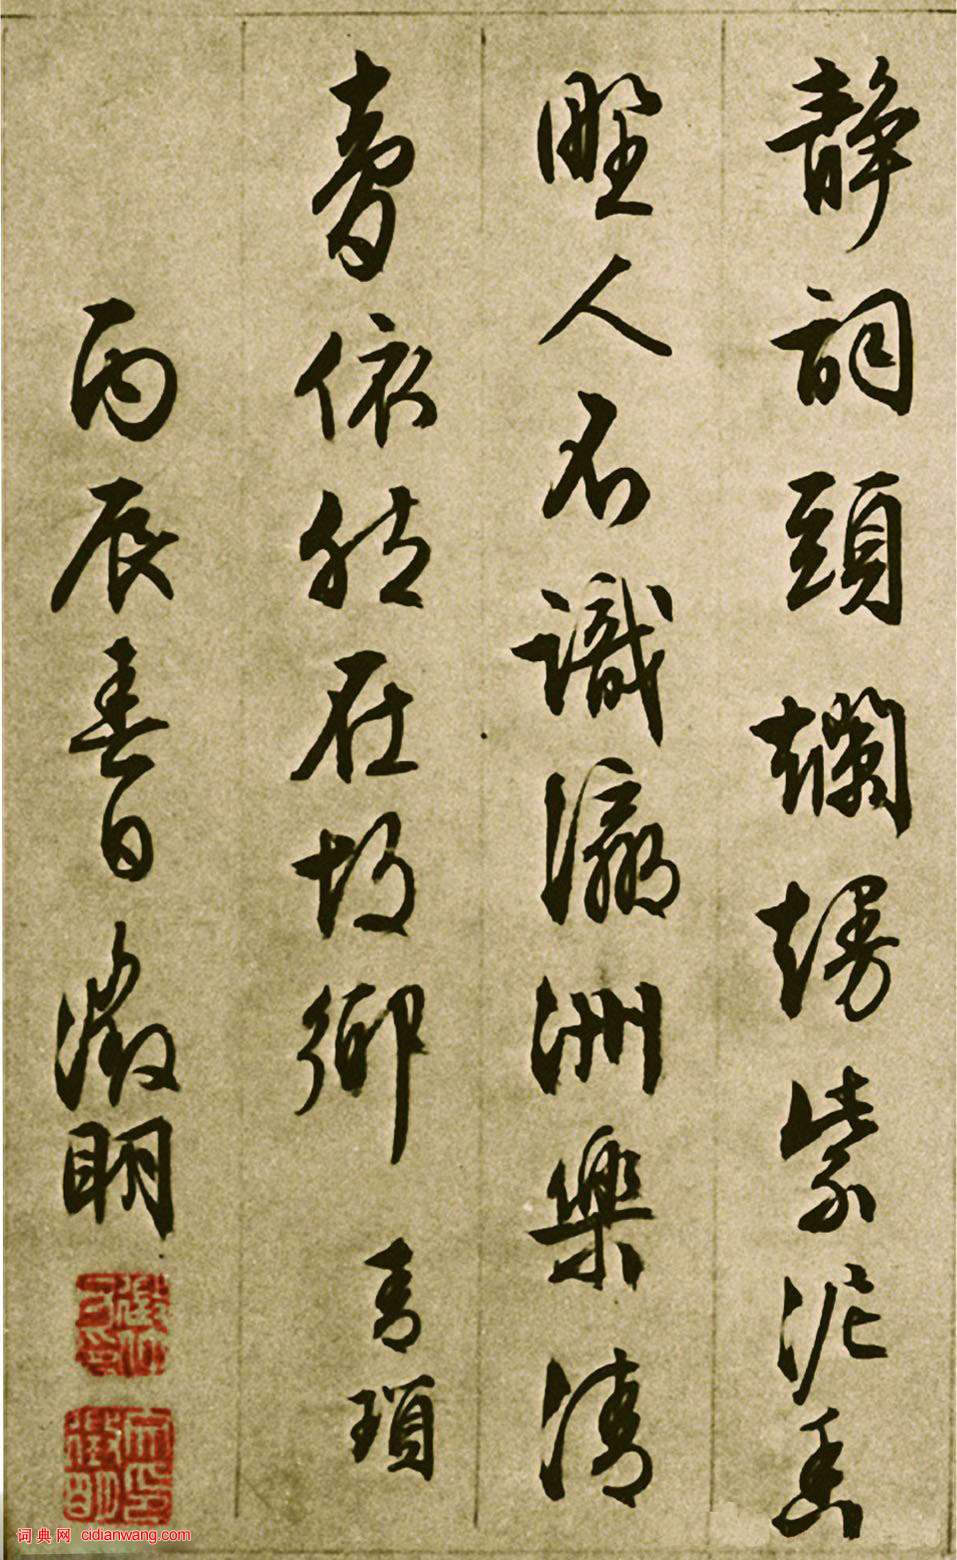 靜詞頭爛熳紫泥香
野人不識瀛洲樂清
夢依然在故鄉 青瑣
丙辰春日徵明
文徵明印
词典网 cidianwang.com